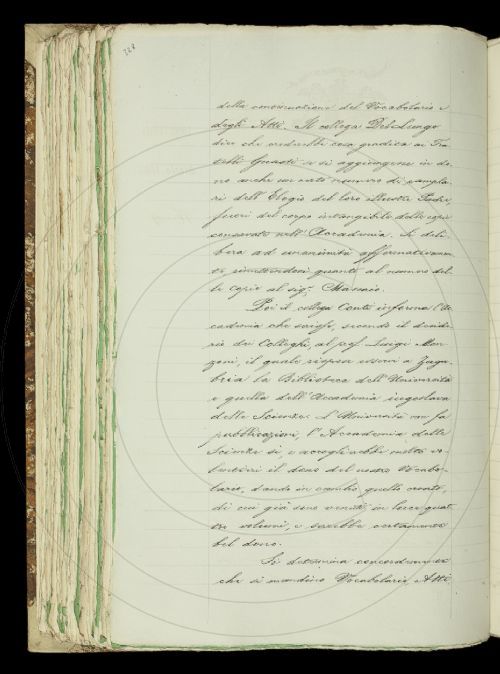 228
della continuazione del Vocabolario e
degli Atti. Il collega Del Lungo
dice che crederebbe cosa gradita ai Fra
telli Guasti se si aggiungesse in do-
no anche un certo numero di esempla-
ri dell'Elogio del loro illustre Padre,
fuori del corpo intangibile delle copie
conservate nell'Accademia. Si deli-
bera ad unanimità affermativamen-
te, rimettendoci quanto al numero del-
le copie al sig.
Poi il collega Conti informa l'Ac
cademia che scrisse, secondo il deside-
rio dei Colleghi, al prof. Luigi
zoni, il quale rispose esservi a Zaga-
bria la Biblioteca dell'Università
e quella dell'Accademia iugoslava
delle Scienze. L'Università non fa
pubblicazioni, l'Accademia delle
Scienze sì, e accoglierebbe molto vo-
lentieri il dono del nostro Vocabo-
lario, dando in cambio quello croato,
di cui già sono venuti in luce quat-
tro volumi, e sarebbe certamente
bel dono.
Si determina concordemente
che si mandino Vocabolario, Atti